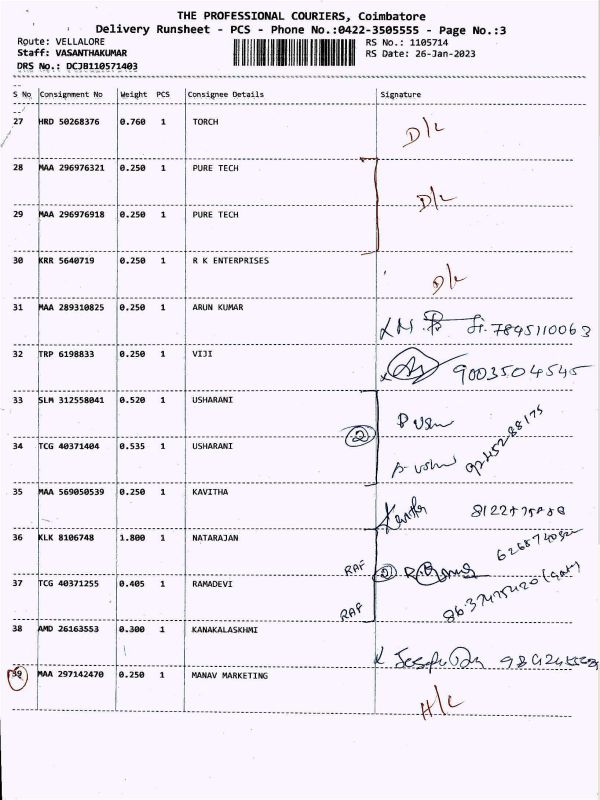 THE PROFESSIONAL COURIERS, Coimbatore
Delivery Runsheet - PCS - Phone No.:0422-3505555 - Page No.:3
Route: VELLALORE RS No.: 1105714
Staff: VASANTHAKUMAR RS Date: 26-Jan-2023
DRS No.: DCJB110571403
S No Consignment No Weight PCS Consignee Details Signature
27 HRD 50268376 0.760 1 TORCH D/L
28 MAA 296976321 0.250 1 PURE TECH
D/L
29 MAA 296976918 0.250 1 PURE TECH
30 KRR 5640719 0.250 1 R K ENTERPRISES D/L
31 MAA 289310825 0.250 1 ARUN KUMAR 7845110063
32 TRP 6198833 0.250 1 VIJI 9003504545
33 SLM 312558041 0.520 1 USHARANI P Usha
2
34 TCG 40371404 0.535 1 USHARANI
35 MAA 569050539 0.250 1 KAVITHA Kavitha
36 KLK 8106748 1.800 1 NATARAJAN
RAF 2
37 TCG 40371255 0.405 1 RAMADEVI
RAF
38 AMD 26163553 0.300 1 KANAKALASKHMI
39 MAA 297142470 0.250 1 MANAV MARKETING H/L